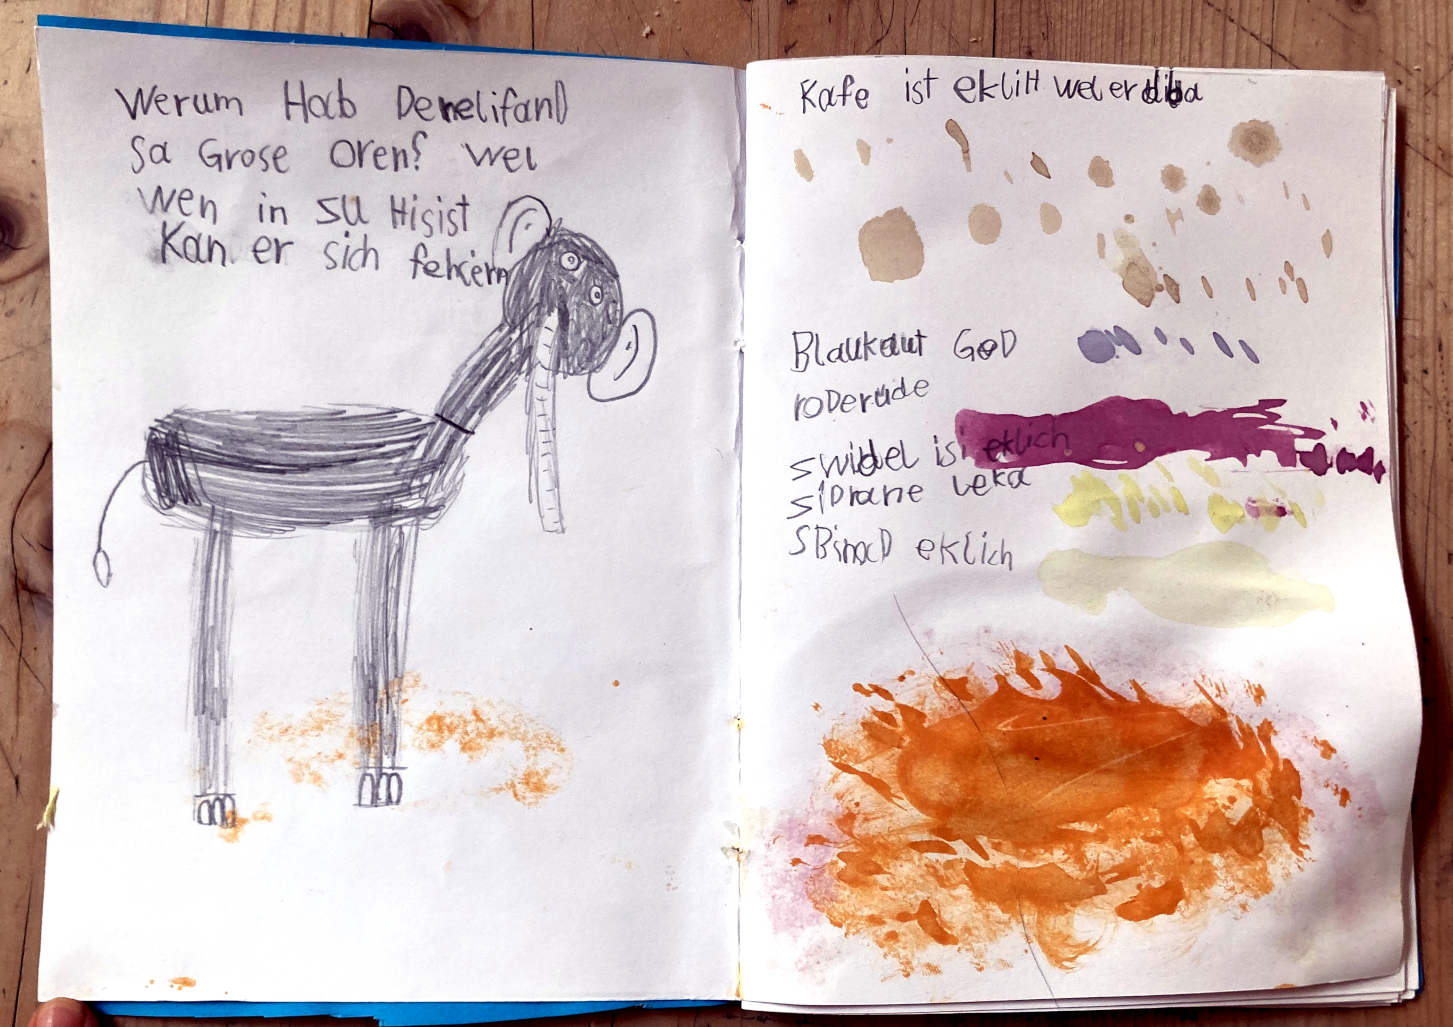 Werum Hab Denelifand
Sa Grose Oren? wel
wen in su Hisist
Kan er sich fehern
Kafe ist eklih weler
Blaukaut God
roDerüde
swibel ist eklich
siDrane leka
SBinaD eklich